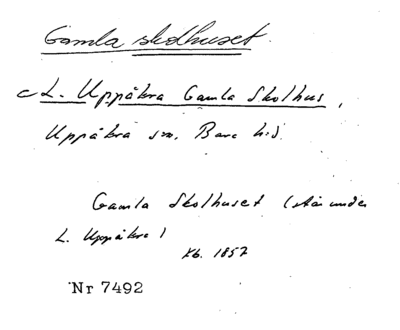 Gamla skolhuset.
L. Uppåkra Gamla Skolhus,
Uppåkra sn. Bara hd.
Gamla Skolhuset (står under
L. Uppåkra)
Kb. 1857
Nr 7492